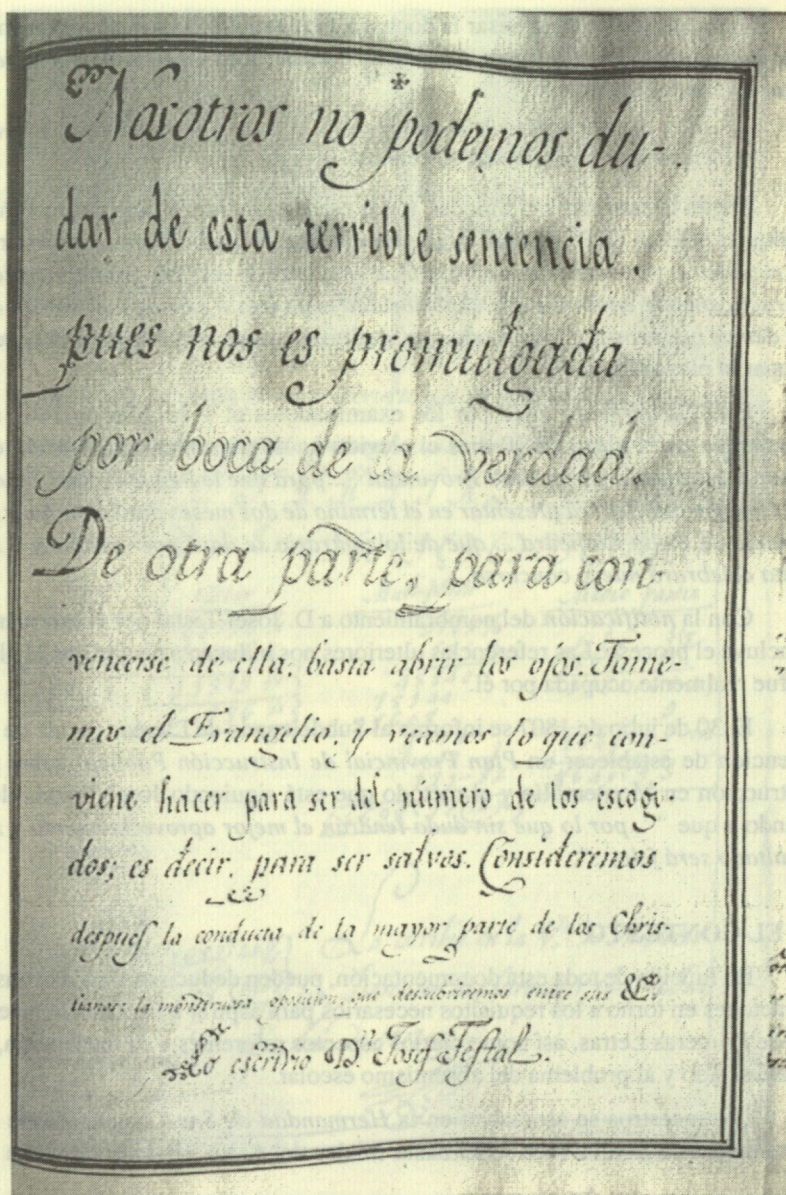 Nosotros no podemos du-
dar de esta terrible sentencia,
pues nos es promulgada
por boca de la verdad.
De otra parte, para con-
vencerse de ella, basta abrir los ojos. Tome-
mos el Evangelio, y veamos lo que con-
viene hacer para ser del número de los escogi-
dos; es decir, para ser salvos. Consideremos
despues la conducta de la mayor parte de los Chris-
tianos: la monstruosa oposicion, que descubriremos entre sus &c.
Lo escribio Dn. Josef Testal.